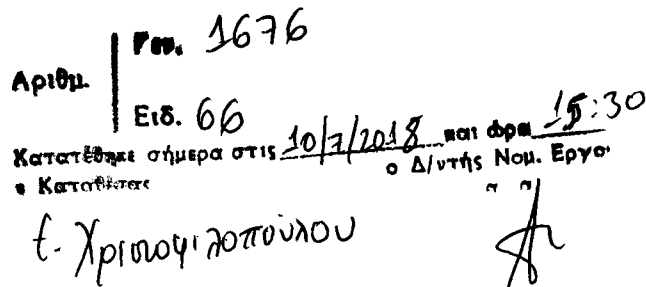 Αριθμ.
Γεν. 1676
Ειδ. 66
Κατατέθηκε σήμερα στις 10/7/2018 και ώρα 15:30
ο Καταθέτης
ο Δ/ντής Νομ. Εργο.
Ε. Χριστοφιλοπούλου